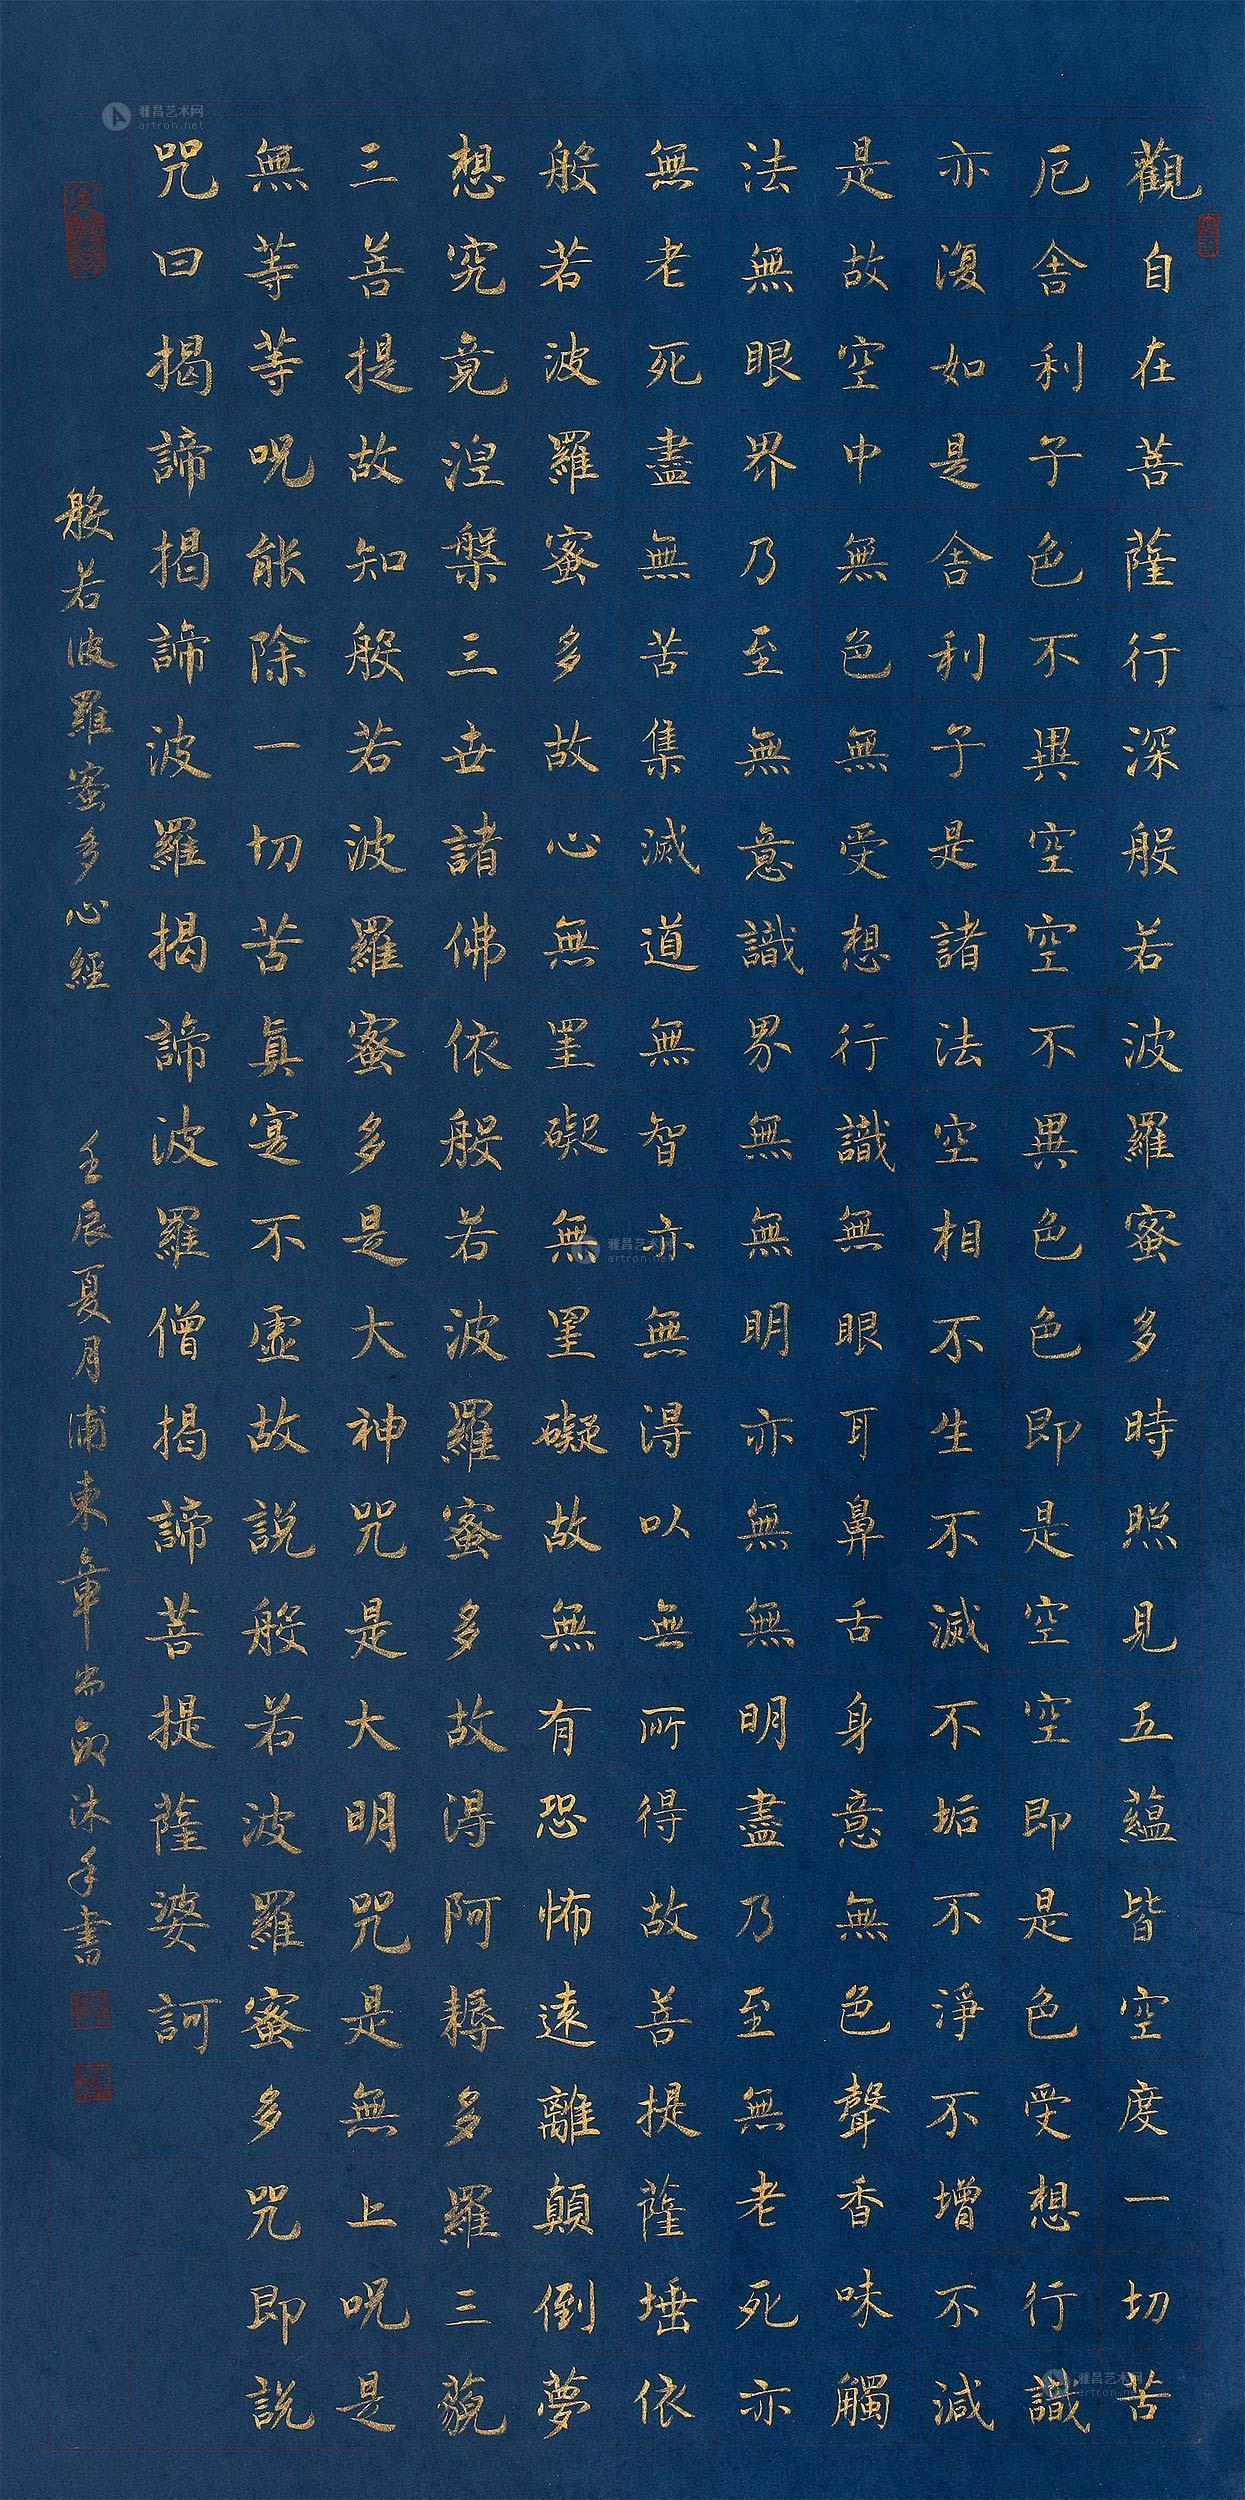 觀自在菩薩行深般若波羅蜜多時照見五蘊皆空度一切苦
厄舍利子色不異空空不異色色即是空空即是色受想行識
亦復如是舍利子是諸法空相不生不滅不垢不淨不增不減
是故空中無色無受想行識無眼耳鼻舌身意無色聲香味觸
法無眼界乃至無意識界無無明亦無無明盡乃至無老死亦
無老死盡無苦集滅道無智亦無得以無所得故菩提薩埵依
般若波羅蜜多故心無罣礙無罣礙故無有恐怖遠離顛倒夢
想究竟涅槃三世諸佛依般若波羅蜜多故得阿耨多羅三藐
三菩提故知般若波羅蜜多是大神咒是大明咒是無上呪是
無等等呪能除一切苦真寔不虛故說般若波羅蜜多咒即説
咒曰揭諦揭諦波羅揭諦波羅僧揭諦菩提薩婆訶
般若波羅蜜多心經 壬辰夏月浦東章尚沐手書
雅昌艺术网
artron.net
雅昌艺术网
artron.net
雅昌艺术网
artron.net